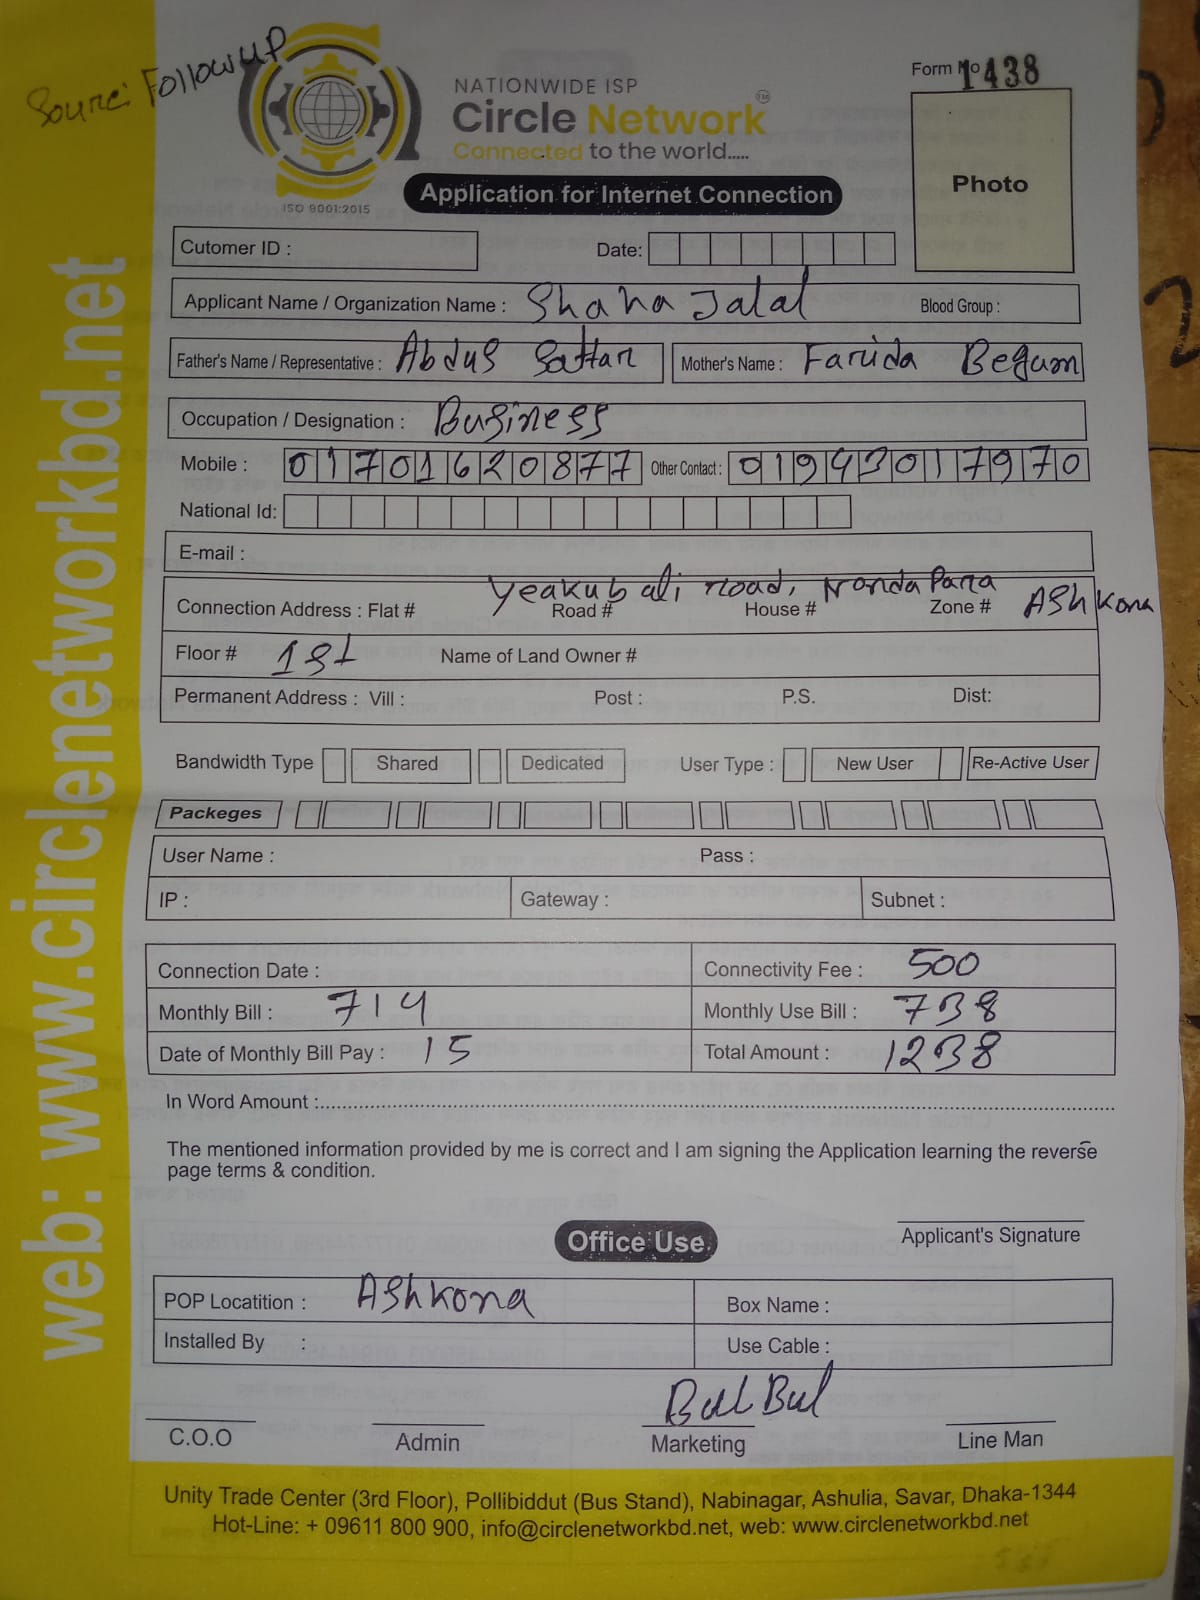 Source: Followup
NATIONWIDE ISP
Circle Network TM
Connected to the world.....
ISO 9001:2015
Form No 1438
Photo
Application for Internet Connection
Cutomer ID :
Date:
Applicant Name / Organization Name : Shaha Jalal Blood Group :
Father's Name / Representative : Abdus Sattar Mother's Name : Farida Begum
Occupation / Designation : Business
Mobile : 01701620877 Other Contact : 01943017970
National Id:
E-mail :
Yeakub ali road, Nonda Para
Connection Address : Flat # Road # House # Zone # Ashkona
Floor # 1st Name of Land Owner #
Permanent Address : Vill : Post : P.S. Dist:
Bandwidth Type Shared Dedicated User Type : New User Re-Active User
Packeges
User Name : Pass :
IP : Gateway : Subnet :
Connection Date : Connectivity Fee : 500
Monthly Bill : 714 Monthly Use Bill : 738
Date of Monthly Bill Pay : 15 Total Amount : 1238
In Word Amount :
The mentioned information provided by me is correct and I am signing the Application learning the reverse
page terms & condition.
Applicant's Signature
Office Use
POP Locatition : Ashkona Box Name :
Installed By : Use Cable :
BulBul
C.O.O Admin Marketing Line Man
Unity Trade Center (3rd Floor), Pollibiddut (Bus Stand), Nabinagar, Ashulia, Savar, Dhaka-1344
Hot-Line: + 09611 800 900, info@circlenetworkbd.net, web: www.circlenetworkbd.net
web: www.circlenetworkbd.net